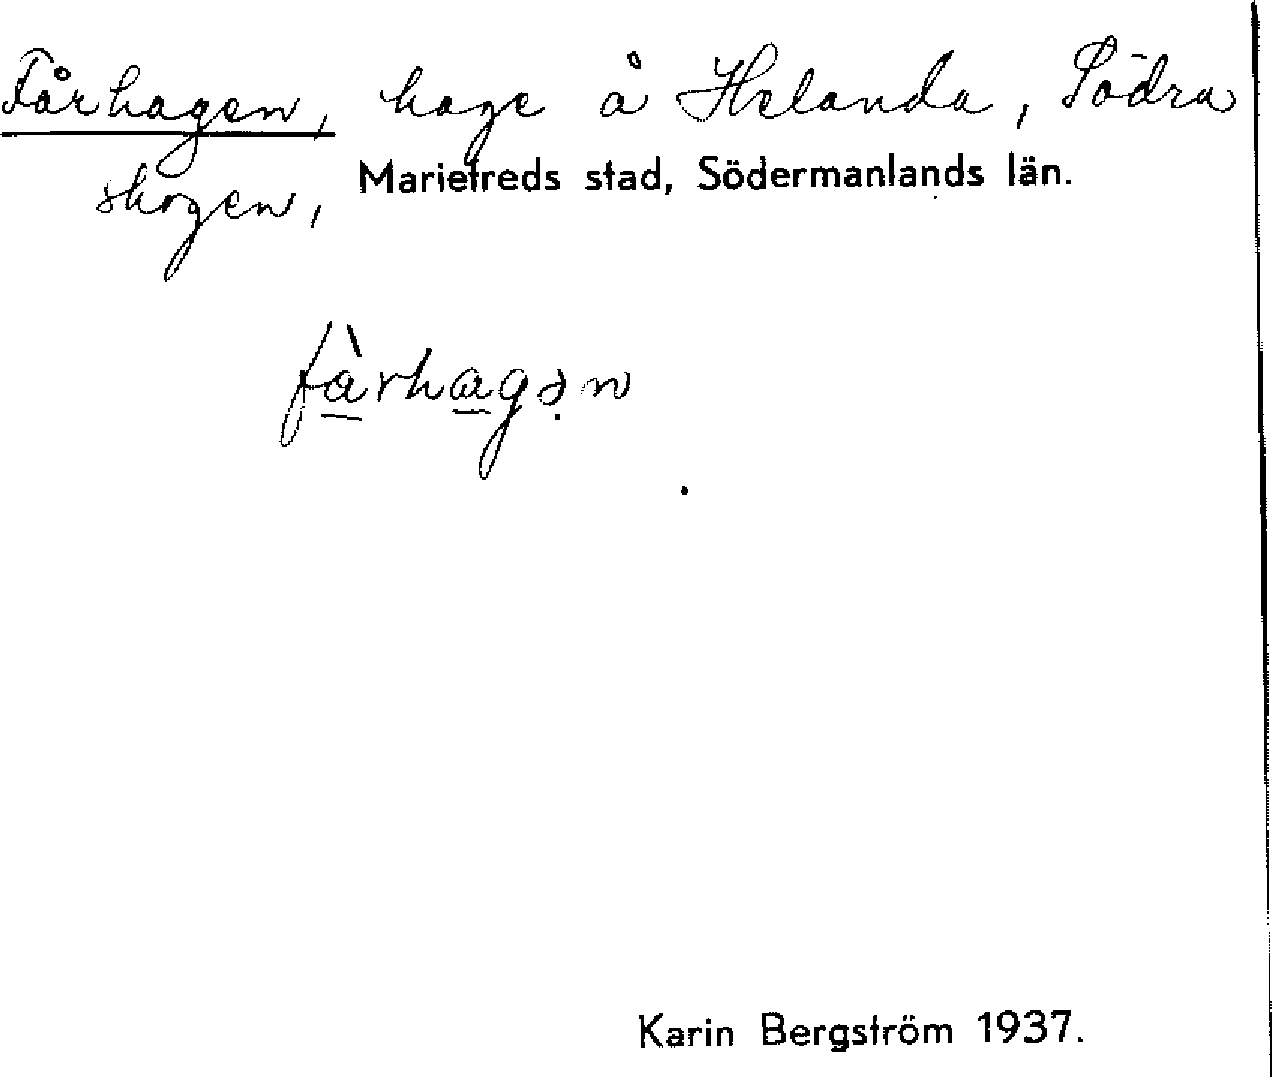 Fårhagen, hage å Helanda, Södra
skogen, Mariefreds stad, Södermanlands län.
fà̱rha̱gə̣n
Karin Bergström 1937.